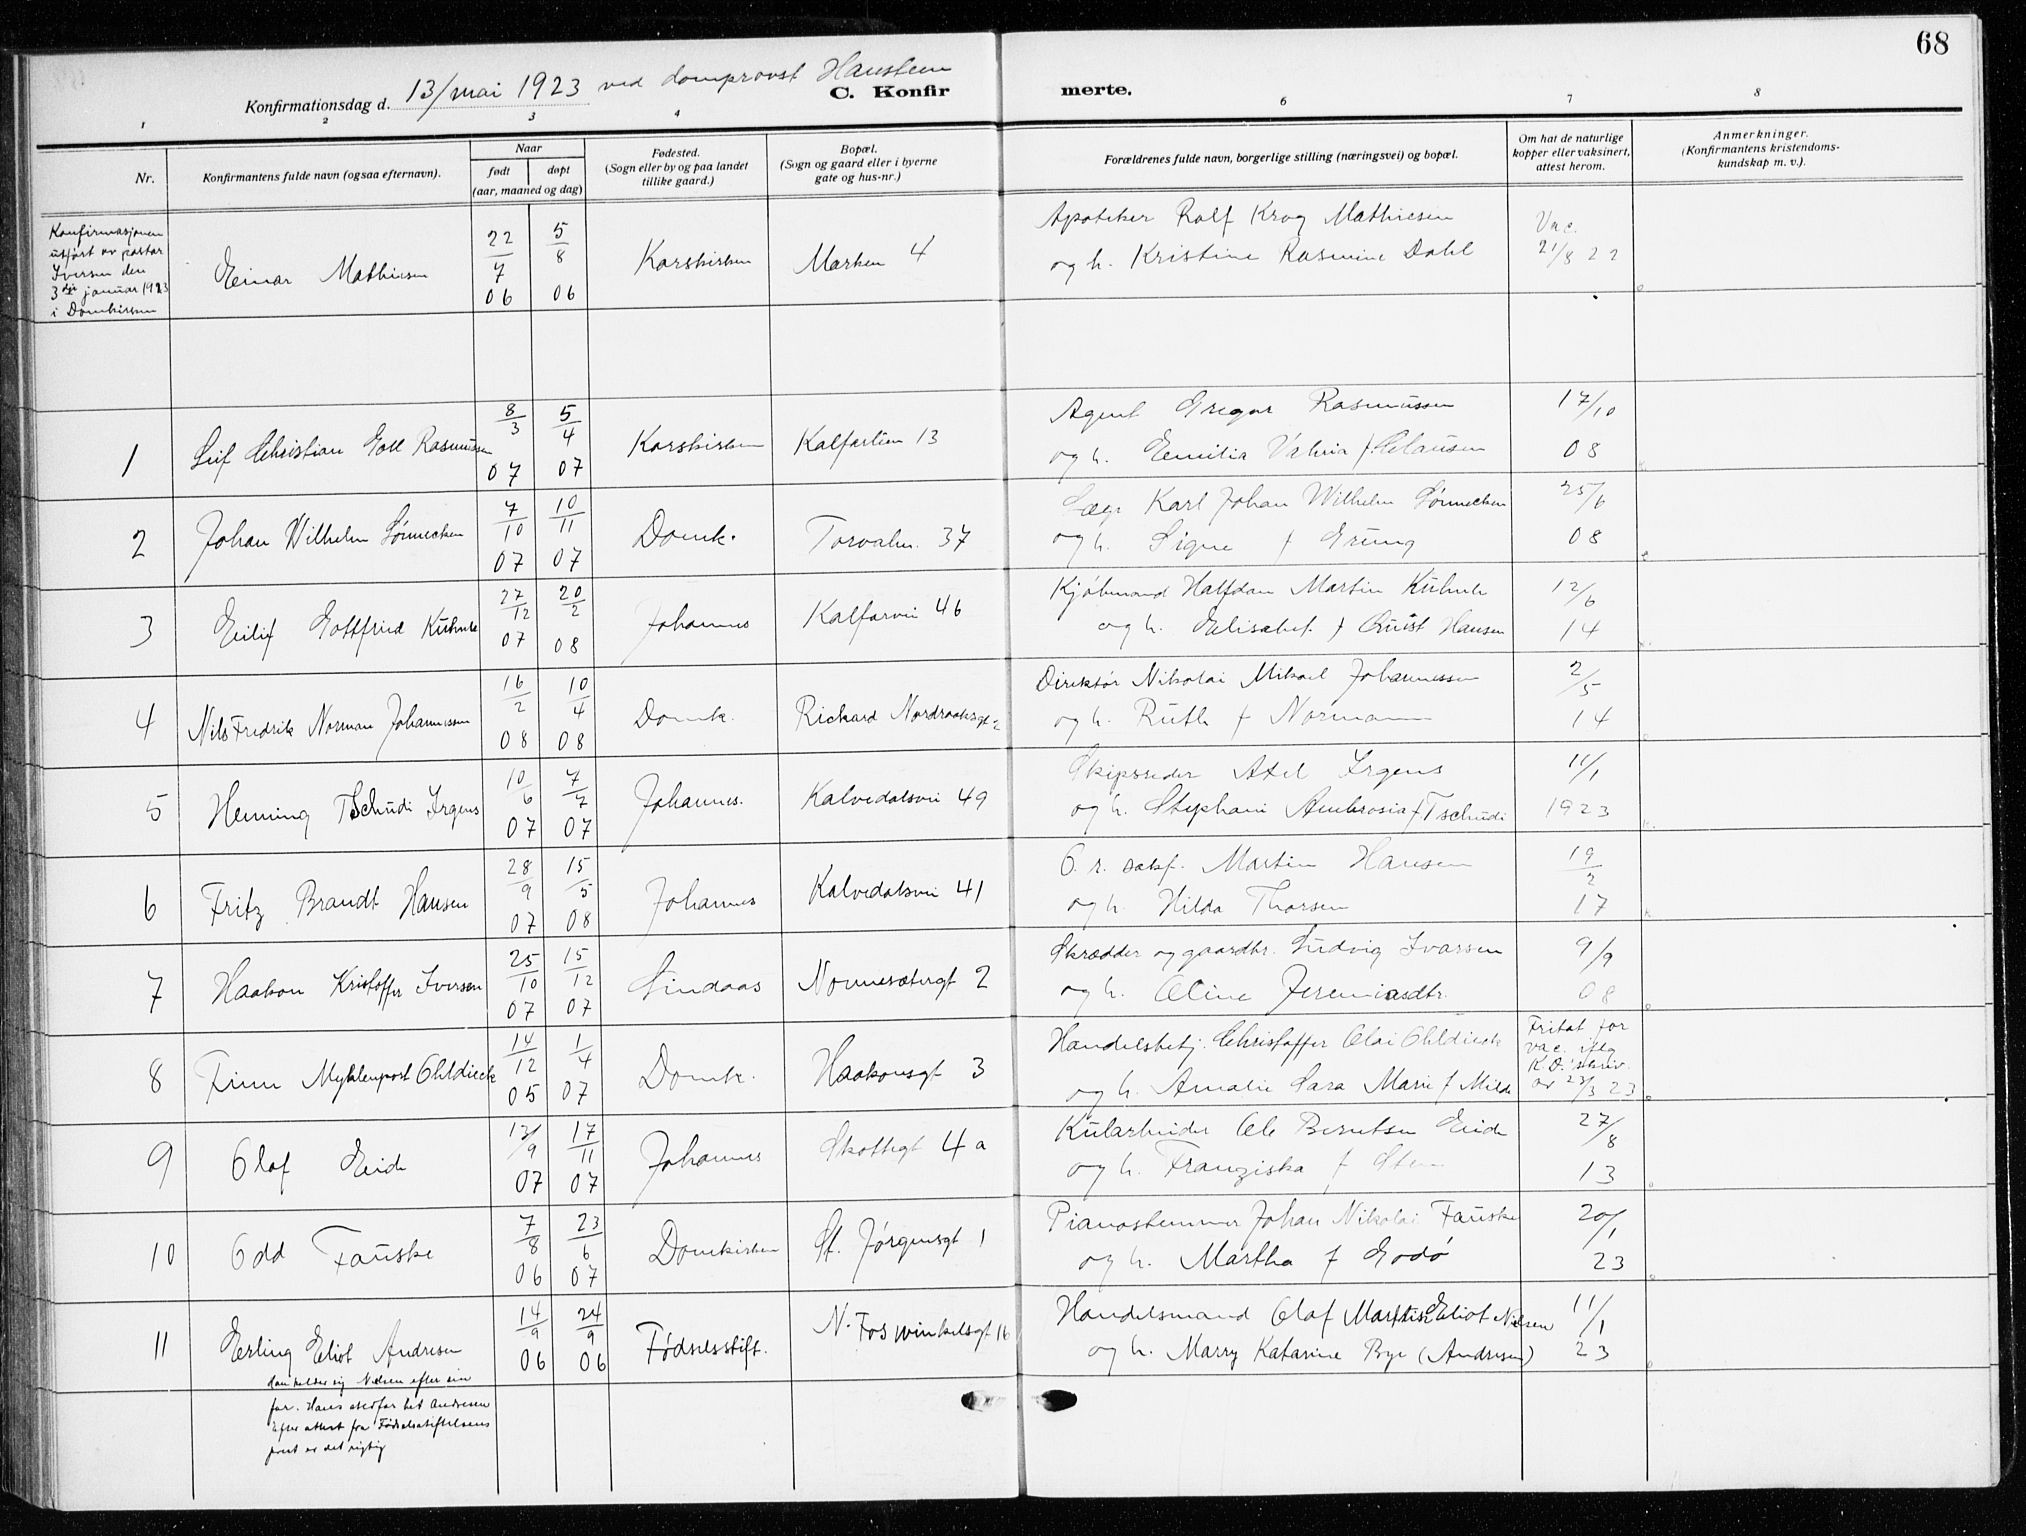 68
Konfirmationsdag d. 13/mai 1923 ved domprovst Hansteen
C. Konfirmerte.
1 2 3 4 6 7 8
Nr. Konfirmantens fulde navn (ogsaa efternavn). Naar født døpt (aar, maaned og dag) Fødested. (Sogn eller by og paa landet tillike gaard.) Bopæl. (Sogn og gaard eller i byerne gate og hus-nr.) Forældrenes fulde navn, borgerlige stilling (næringsvei) og bopæl. Om hat de naturlige kopper eller vaksinert, attest herom. Anmerkninger. (Konfirmantens kristendoms-kundskap m. v.).
Konfirmasjonen
utført av pastor
Iversen den
3dje januar 1923
i Domkirken
Einar Mathiesen 22/7 06 5/8 06 Korskirken Marken 4 Apoteker Rolf Krog Mathiesen
og h. Kristine Rasmine Dahl Vac. 21/8 22
1 Leif Christian Goll Rasmussen 8/3 07 5/4 07 Korskirken Kalfarlien 13 Agent Gregar Rasmussen
og h. Emilia Valvia f. Clausen 17/10 08
2 Johan Wilhelm Sönnecken 7/10 07 10/11 07 Domk. Torvalm. 37 Læge Karl Johan Wilhelm Sönnecken
og h. Signe f Grung 25/6 08
3 Eilif Gottfried Kuhnle 27/12 07 20/2 08 Johannes Kalfarvei 46 Kjøbmand Halfdan Martin Kuhnle
og h. Elisabet f Quist Hansen 12/6 14
4 Nils Fredrik Norman Johannessen 16/2 08 10/4 08 Domk. Rickard Nordraaksgt 2 Direktør Nikolai Mikael Johannessen
og h. Ruth f Normann 2/5 14
5 Henning Tschudi Irgens 10/6 07 7/7 07 Johannes. Kalvedalsvei 49 Skipsreder Axel Irgens
og h. Stephani Ambrosia f Tschudi 11/1 1923
6 Fritz Brandt Hansen 28/9 07 15/5 08 Johannes Kalvedalsvei 41 O. r. sakf. Martin Hansen
og h. Hilda Thorsen 19/2 17
7 Haakon Kristoffer Iversen 25/10 07 15/12 07 Lindaas Nonnesætergt 2 Skrædder og gaardbr. Ludvig Ivarsen
og h. Oline Jeremiasdtr. 9/9 08
8 Finn Myklenpost Ohldieck 14/12 05 1/4 07 Domk. Haakonsgt 3 Handelsbetj. Christoffer Olai Ohldieck
og h. Amalie Sara Marie f Milde Fritat for vac. iflg K.D.' skriv. av 23/3 23
9 Olaf Eide 13/9 07 17/11 07 Johannes Skottegt 4 a Kularbeider Ole Berntsen Eide
og h. Franziska f Sten 27/8 13
10 Odd Fauske 7/8 06 23/6 07 Domkirken St. Jørgensgt 1 Pianostemmer Johan Nikolai Fauske
og h. Martha f Godø 20/1 23
11 Erling Eliot Andresen 14/9 06 24/9 06 Fødselsstift. N. Foswinkelsgt 16 Handelsmand Olaf Martin Eliot Nilsen
og h. Marry Katarine Bye (Andresen) 11/1 23
han kalder sig Nilsen efter sin
far. Hans stedfar het Andresen
Efter attest fra Fødselsstiftelsens
prest er det rigtig